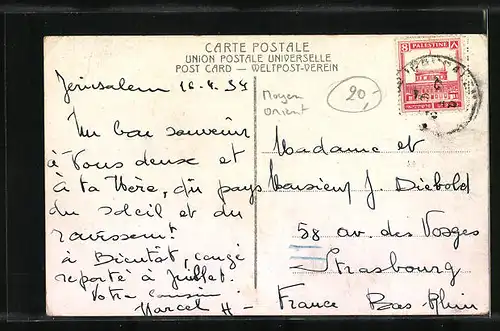 CARTE POSTALE
UNION POSTALE UNIVERSELLE
POST CARD — WELTPOST-VEREIN
8 PALESTINE ٨
Jérusalem 16.4.34
Moyen
orient
20,-
Un bon souvenir
à Vous deux et
à ta Mère, du pays
du soleil et du
ravissement!
à Bientôt, congé
reporté à Juillet.
Votre cousin
Marcel H-
Madame et
Monsieur J. Diebold
58 av. des Vosges
Strasbourg
France Bas Rhin